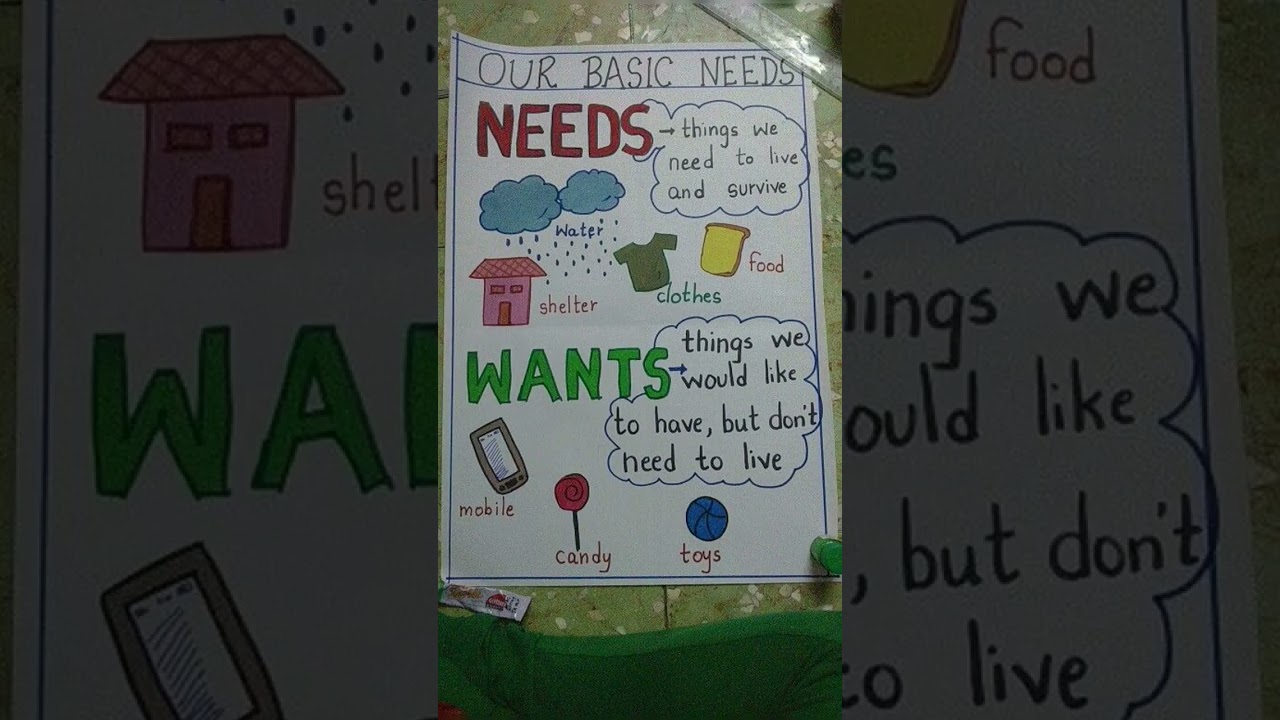 OUR BASIC NEEDS
NEEDS → things we
need to live
and survive
water
food
clothes
shelter
WANTS → things we
would like
to have, but don't
need to live
mobile
candy
toys